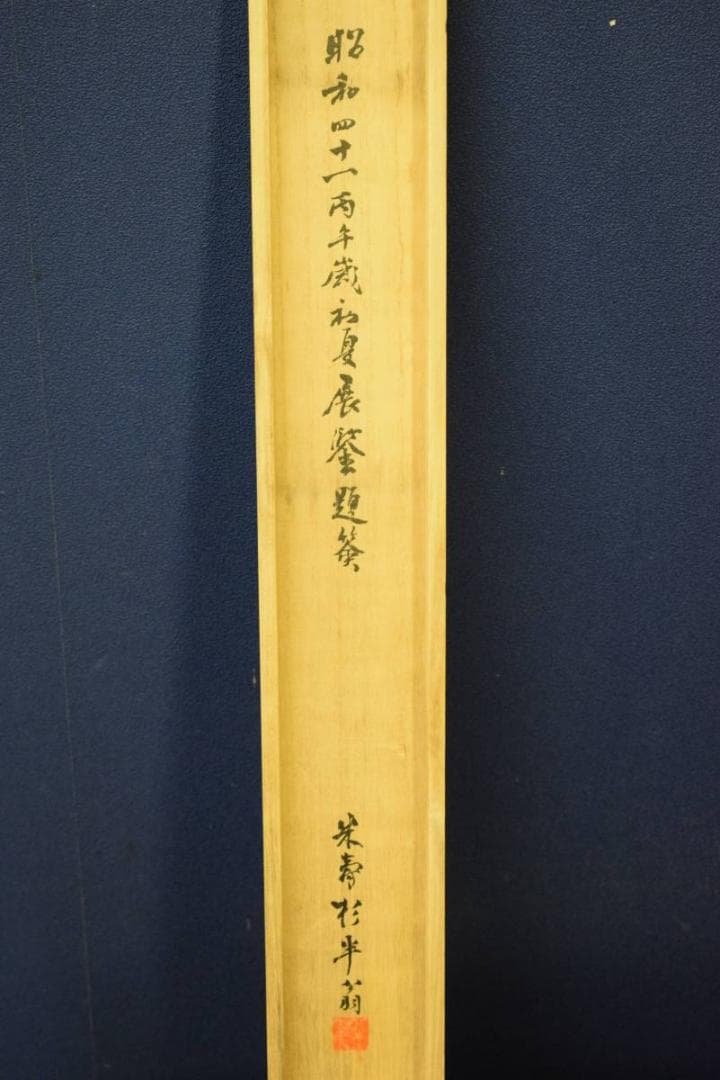 昭和四十一丙午歳初夏展鑒題簽
米寿杉半翁